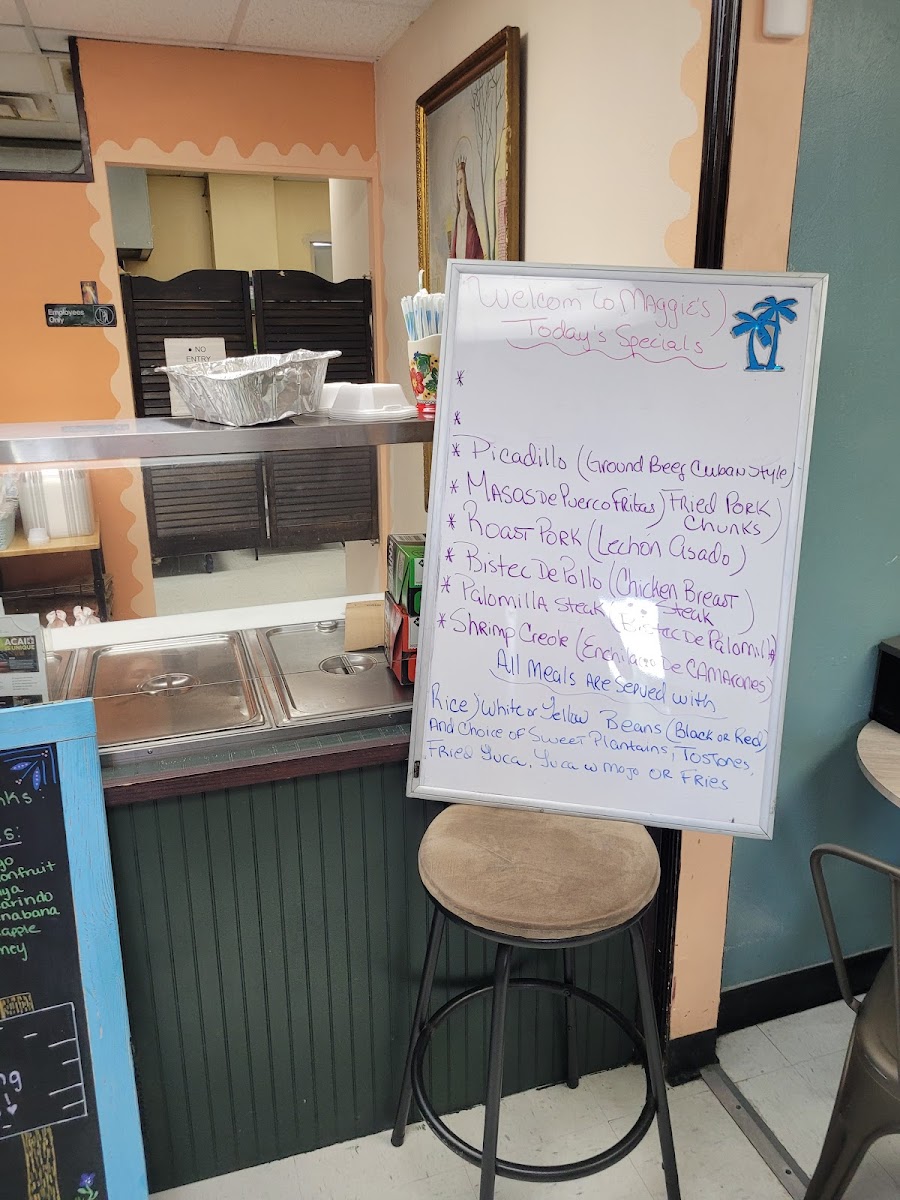 Welcom To Maggie's
Today's Specials
*
*
* Picadillo (Ground Beef Cuban Style)
* Masas De Puerco Fritas) Fried Pork
Chunks)
* Roast Pork (Lechón Asado)
* Bistec De Pollo (Chicken Breast
Steak)
* Palomilla Steak Bistec De Palomilla
* Shrimp Creole (Enchilado De Camarones)
All Meals Are Served with
Rice) White or Yellow Beans (Black or Red)
And Choice of Sweet Plantains, Tostones,
Fried Yuca, Yuca w mojo OR Fries
Employees
Only
NO
ENTRY
ACAI